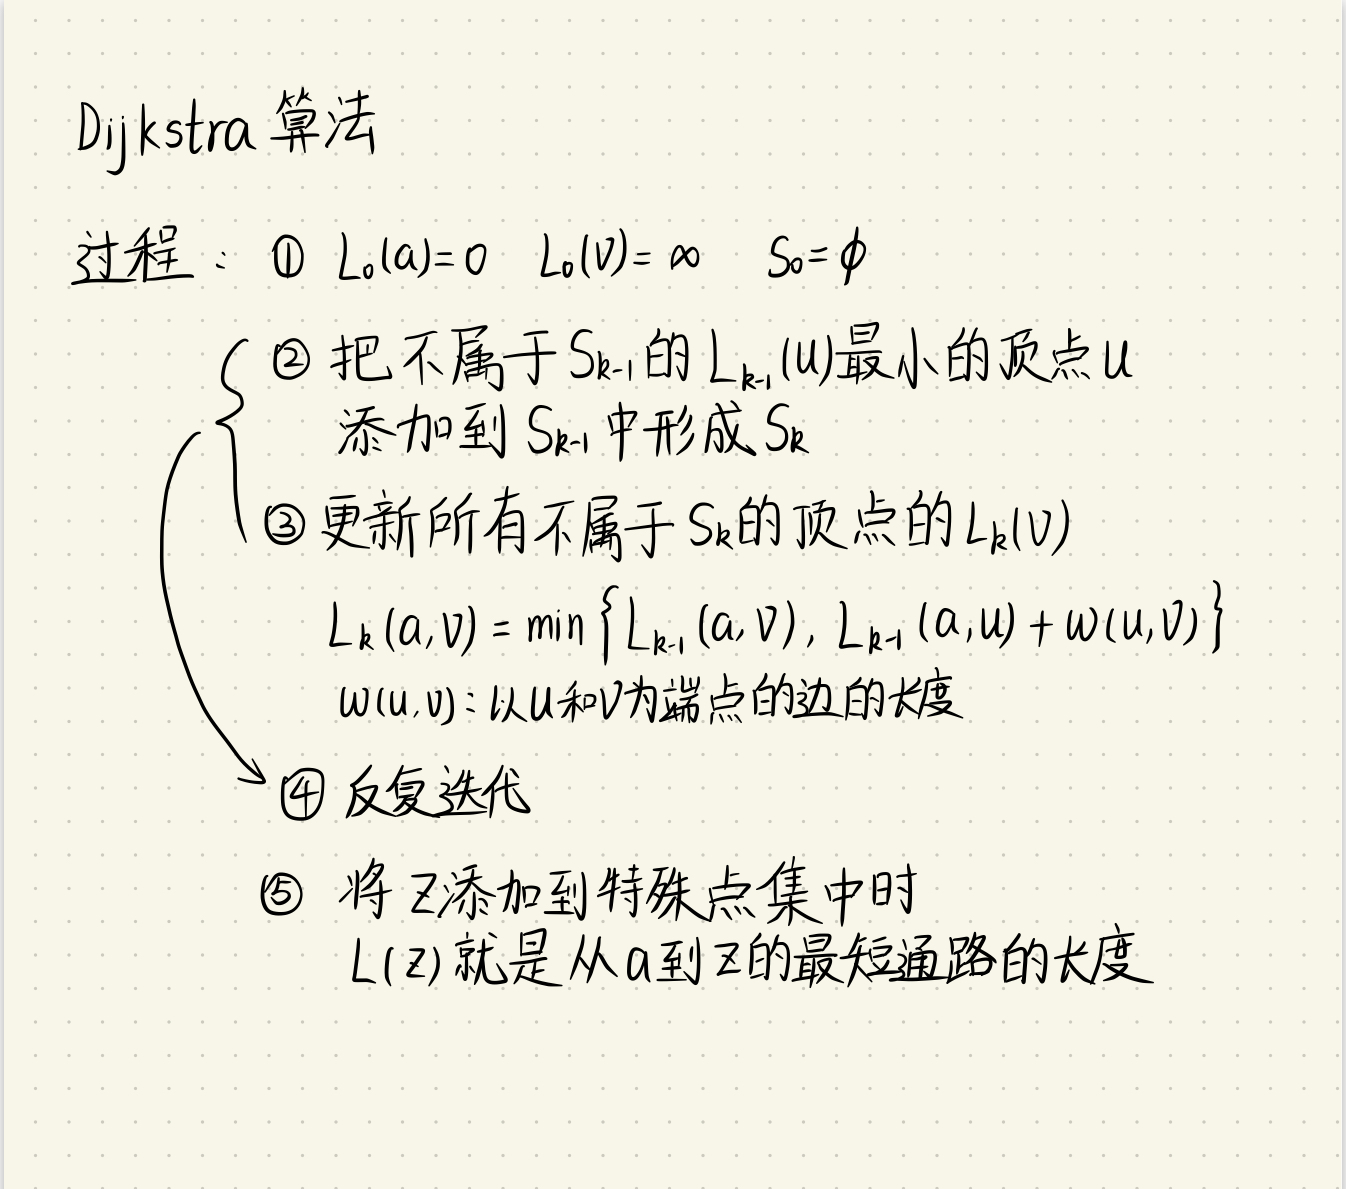 Dijkstra 算法
过程： ① L₀(a)=0 L₀(V)=∞ S₀=ϕ
② 把不属于Sₖ₋₁的Lₖ₋₁(u)最小的顶点u
添加到Sₖ₋₁中形成Sₖ
③ 更新所有不属于Sₖ的顶点的Lₖ(V)
Lₖ(a,V)=min{Lₖ₋₁(a,V), Lₖ₋₁(a,u)+w(u,V)}
w(u,v)：以u和V为端点的边的长度
④ 反复迭代
⑤ 将z添加到特殊点集中时
L(z)就是从a到z的最短通路的长度